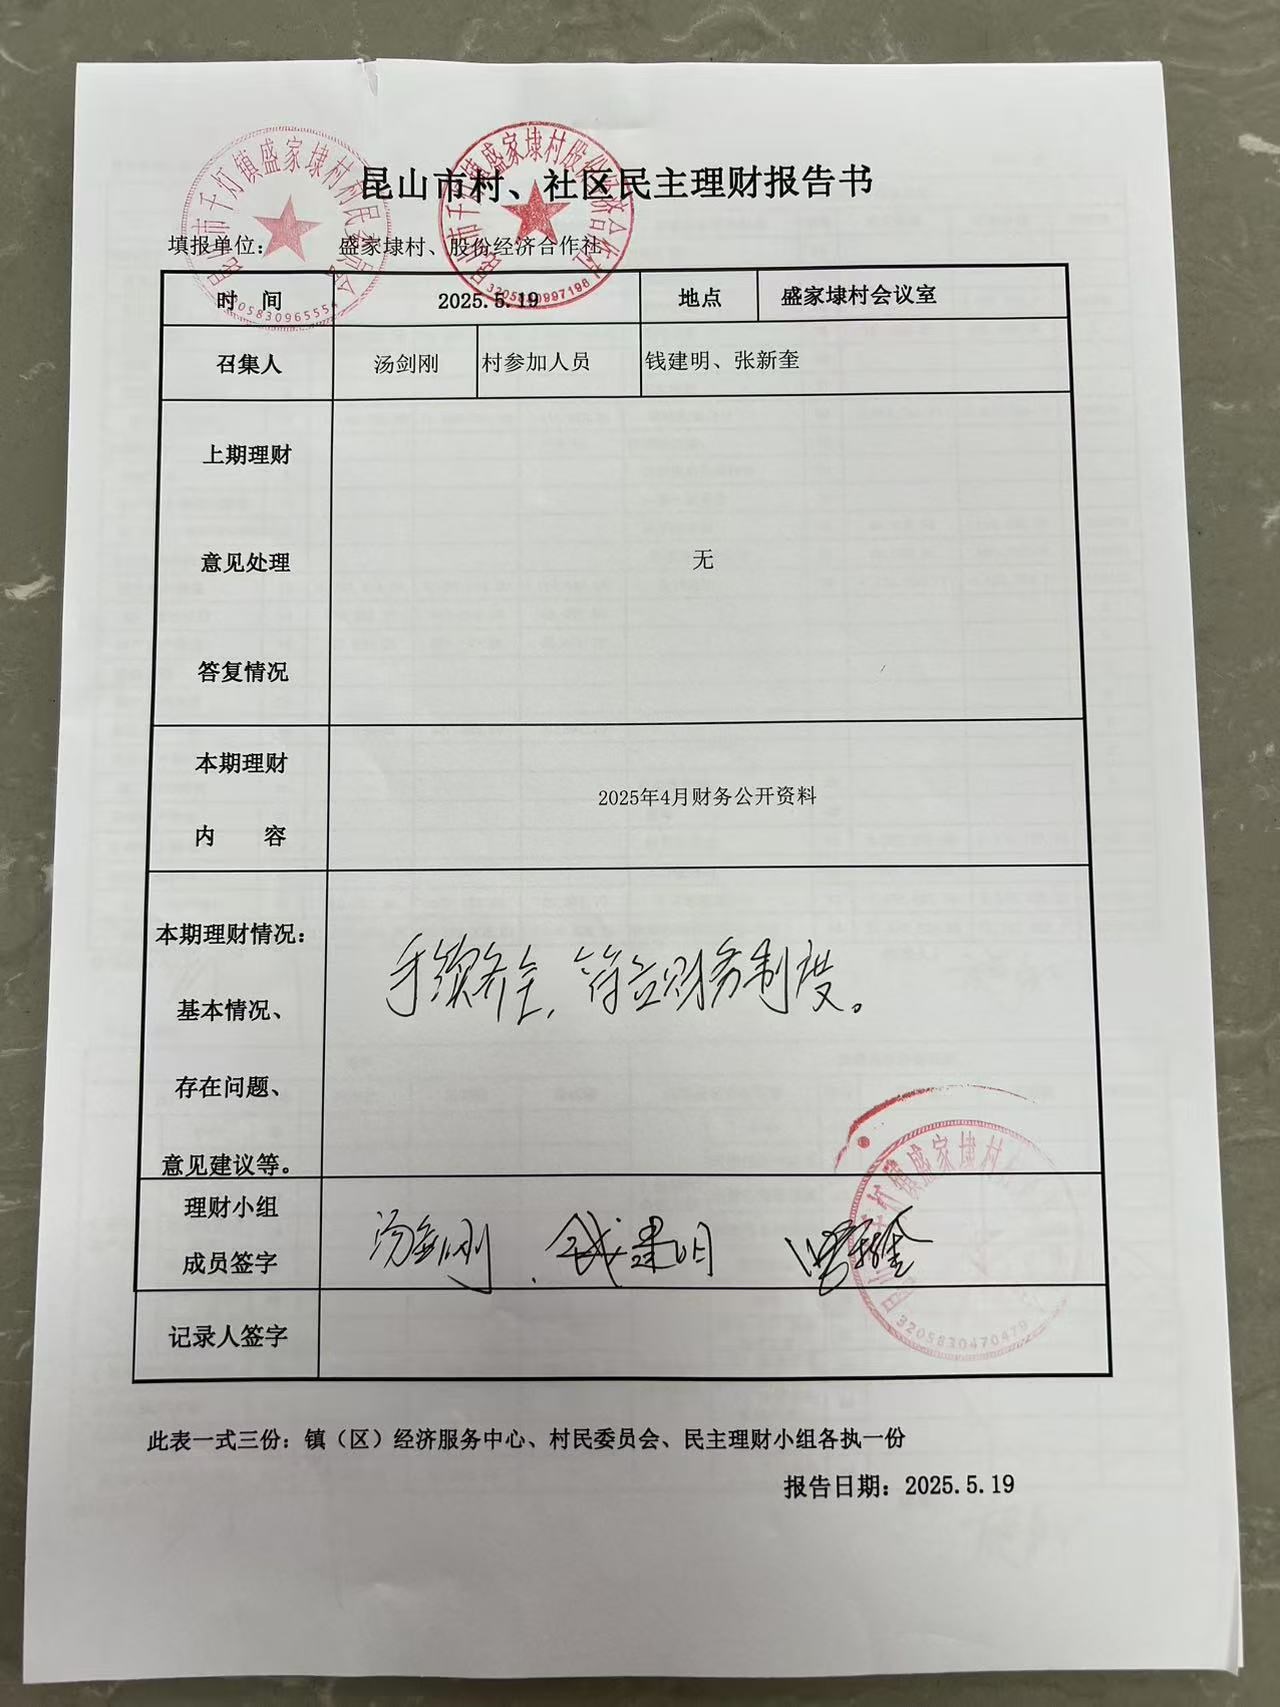 昆山市村、社区民主理财报告书
填报单位： 盛家埭村、股份经济合作社
时 间 2025.5.19 地点 盛家埭村会议室
召集人 汤剑刚 村参加人员 钱建明、张新奎
上期理财
意见处理
答复情况
无
本期理财
内 容
2025年4月财务公开资料
本期理财情况：
基本情况、
存在问题、
意见建议等。
手续齐全，符合财务制度。
理财小组
成员签字
汤剑刚 . 钱建明
记录人签字
此表一式三份：镇（区）经济服务中心、村民委员会、民主理财小组各执一份
报告日期：2025.5.19
昆山市千灯镇盛家埭村村民委员会
昆山市千灯镇盛家埭村股份经济合作社
3205830997198
镇盛家埭村
3205830470479